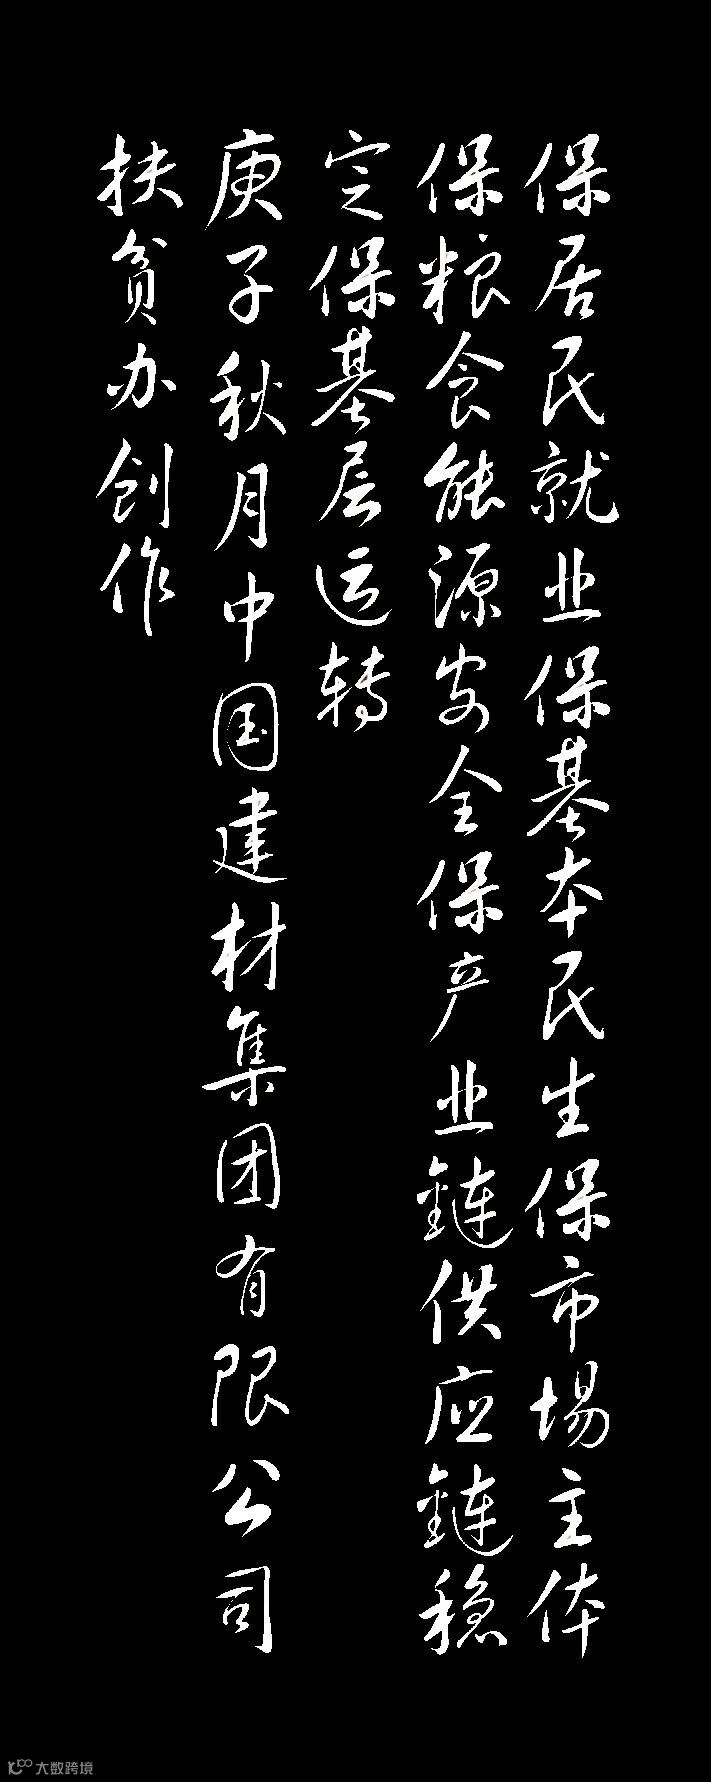 保居民就业保基本民生保市場主体
保粮食能源安全保产业鏈供应鏈稳
定保基层运转
庚子秋月中国建材集团有限公司
扶贫办创作
大数跨境